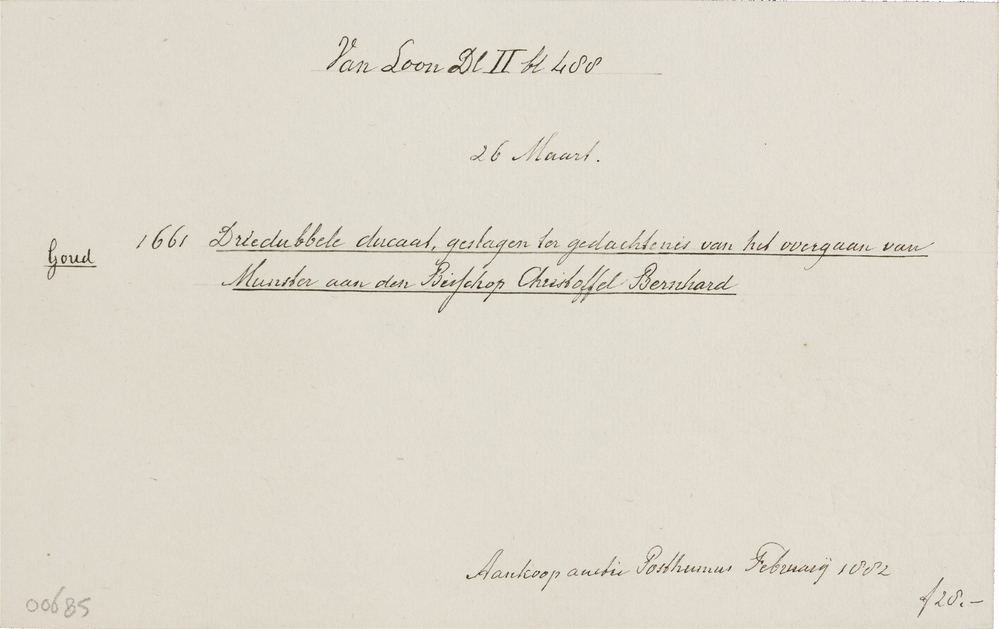 Van Loon Dl II bl 488
26 Maart.
Goud
1661 Driedubbele ducaat, geslagen ter gedachtenis van het overgaan van
Munster aan den Bisschop Christoffel Bernhard
Aankoop auctie Posthumus Februarij 1882
f 28.-
00685